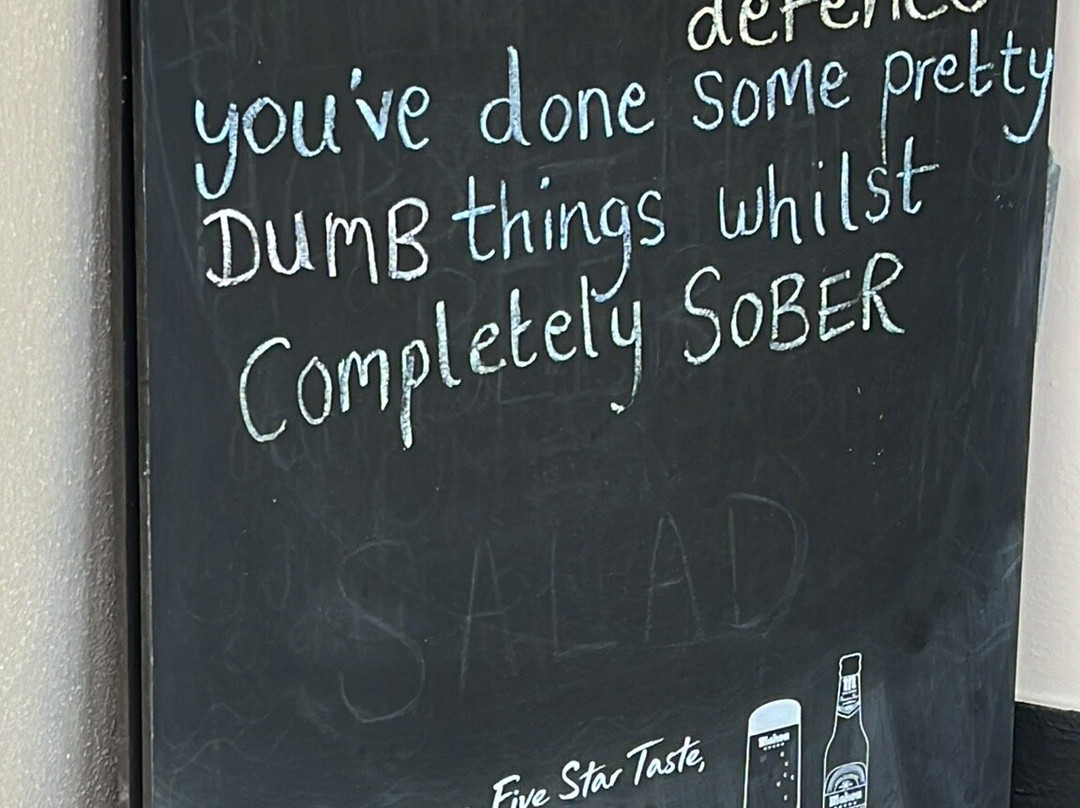 defence
you've done some pretty
DUMB things whilst
Completely SOBER
SALAD
Five Star Taste,
Mahou
Mahou